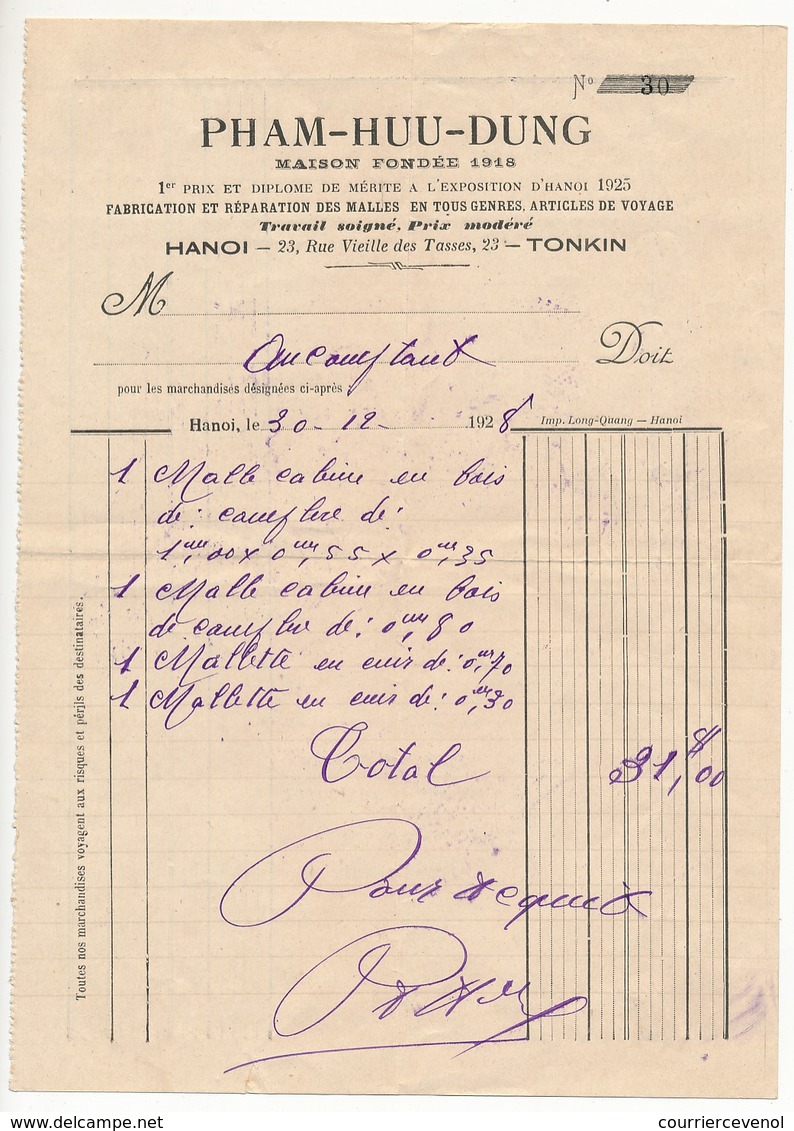 Nº 30
PHAM-HUU-DUNG
MAISON FONDÉE 1918
1er PRIX ET DIPLOME DE MÉRITE A L'EXPOSITION D'HANOI 1925
FABRICATION ET RÉPARATION DES MALLES EN TOUS GENRES, ARTICLES DE VOYAGE
Travail soigné, Prix modéré
HANOI — 23, Rue Vieille des Tasses, 23 — TONKIN
M
Au comptant Doit
pour les marchandises désignées ci-après :
Hanoi, le 30-12- 1928 Imp. Long-Quang — Hanoi
1 Malle cabine en bois
de: camphre de:
1m,00 x 0m,55 x 0m,35
1 Malle cabine en bois
de camphre de: 0m,80
1 Mallette en cuir de: 0m,70
1 Mallette en cuir de: 0m,30
Total 31$,00
Pour acquit
Toutes nos marchandises voyagent aux risques et périls des destinataires.
www.delcampe.net courriercevenol